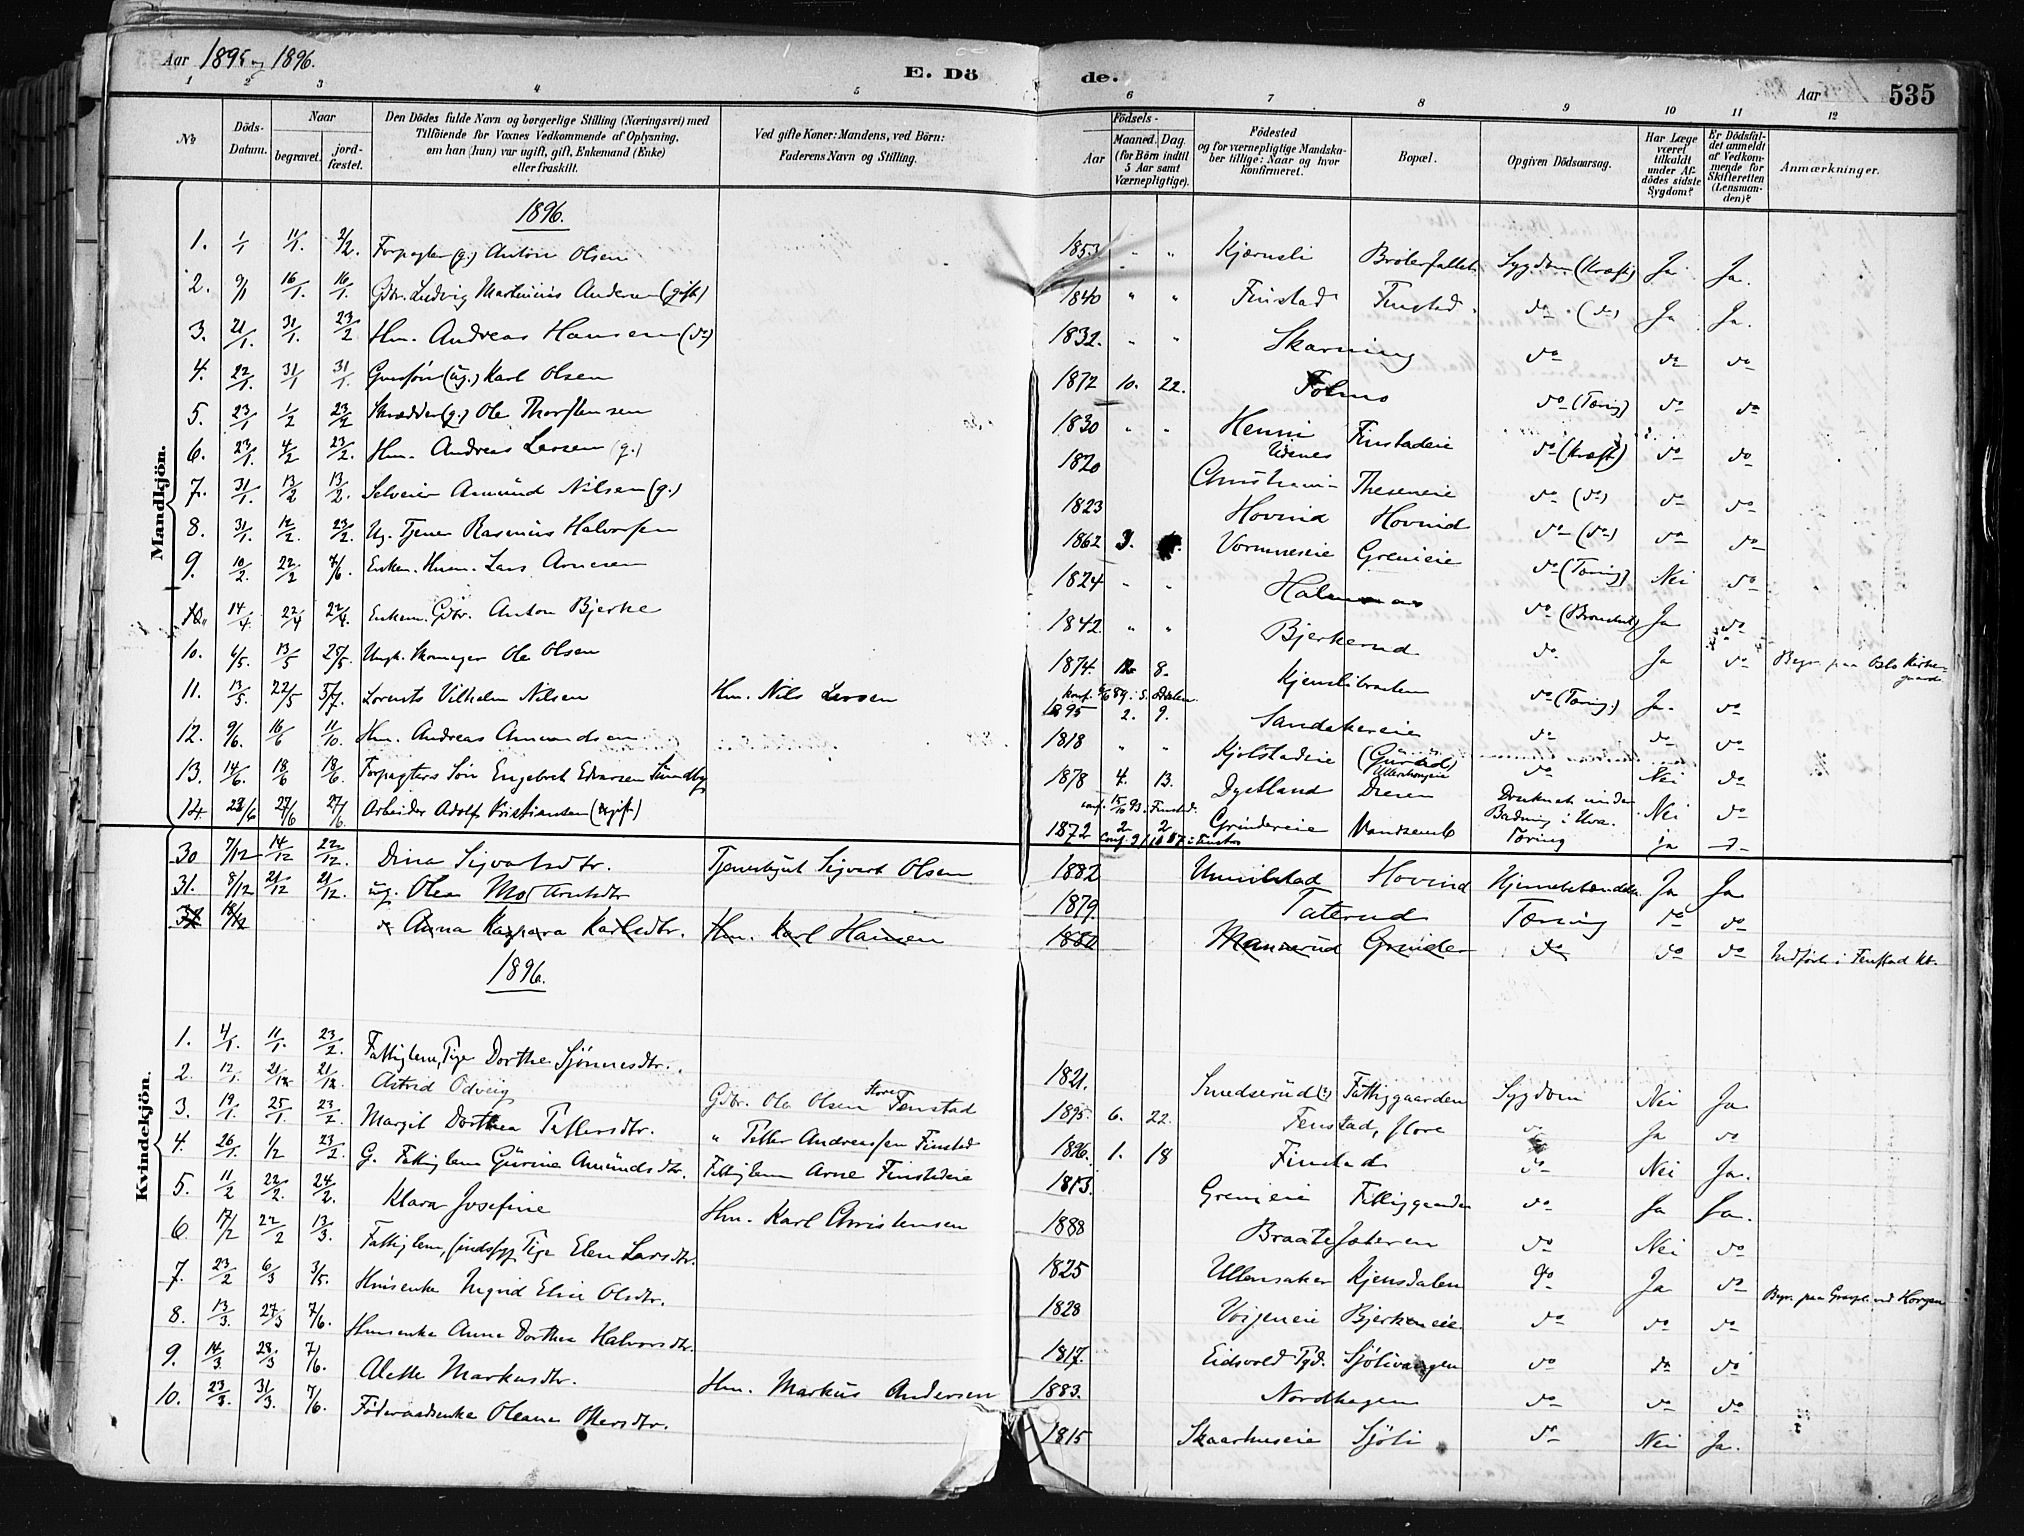 Aar 1895 og 1896.
E. Dö de.
Aar 535
1 2 3 4 5 6 7 8 9 10 11 12
No
Döds-Datum.
Naar
begravet.
jord-fæstet.
Den Dödes fulde Navn og borgerlige Stilling (Næringsvei) med
Tilföiende for Voxnes Vedkommende af Oplysning,
om han (hun) var ugift, gift, Enkemand (Enke)
eller fraskilt.
Ved gifte Koner: Mandens, ved Börn:
Faderens Navn og Stilling.
Födsels-
Aar
Maaned. Dag.
(for Börn indtil
5 Aar samt
Værnepligtige).
Födested
og for værnepligtige Mandska-
ber tillige: Naar og hvor
konfirmeret.
Bopæl.
Opgiven Dödsaarsag.
Har Læge
været
tilkaldt
under Af-
dödes sidste
Sygdom?
Er Dödsfal-
det anmeldt
af Vedkom-
mende for
Skifteretten
(Lensman-
den)?
Anmærkninger.
Mandkjön.
1896.
1. 1/1 11/1. 2/2. Forpagter (g.) Anton Olsen 1853 " " Kjærnsli Bröterfallet Sygdom (Kræft) Ja Ja.
2. 9/1 16/1. 16/1. Gdbr. Ludvig Martinius Andersen (gift) 1840 " " Finstad Finstad do (do) Ja Ja.
3. 21/1. 31/1. 23/2 Hm. Andreas Hansen (do) 1832. " " Skarning do do do
4. 22/1. 31/1 31/1. Gaardsön (ug.) Karl Olsen 1872 10. 22. Folmo do (Tæring) do do
5. 23/1 1/2 23/2 Skrædder (g.) Ole Thorstensen 1830 " " Henni Finstadeie do (Kræft) do do
6. 23/1. 4/2 23/2. Hm. Andreas Larsen (g.) 1820 Udenes Christiania Theseneie do (do) do do
7. 31/1. 13/2 13/2. Selveier Amund Nilsen (g.) 1823 Hovind Hovind do (do) do do
8. 31/1. 12/2. 23/2. Ug. Tjener Rasmus Halvorsen 1862 3. Vormneseie Grenieie do (Tæring) Nei do
9. 10/2. 22/2 7/6. Enkem. Husm. Lars Arnesen 1824 " " do (Bronchit) Ja do
14/4. 22/4 22/4. Enkem. Gdbr. Anton Bjerke 1842 " " Bjerkerud do Ja do Begr. paa Oslo Kirkegaard.
10. 6/5. 13/5 25/5. Ungk. Skomager Ole Olsen 1874. 12 8. Kjenslibraaten do (Tæring.) Ja. do
konf. 6/6 89. i S. Odalen
11. 13/5. 22/5 5/7. Lorents Vilhelm Nilsen Hm. Nils Larsen 1895 2. 9. Sandakereie do do do
12. 9/6. 16/6 11/10. Hm. Andreas Amundsen 1818 " " Kjolstadeie do Nei do
13. 14/6. 18/6 18/6. Forpagters Sön Engebret Edvarsen Sundby 1878 4. 13. Dystland Druknet under Badning i Elva. Nei do
conf. 15/10 93 i Finstad.
14 23/6 27/6 27/6. Arbeider Adolf Kristiansen (ugift) 1872 2 2 Grindereie Tæring ja
30 7/12 14/12 22/12. Dina Sigvartsdtr. Tjenestgut Sigvart Olsen 1882 Hovind Hjernebetændelse Ja Ja
31. 8/12 21/12 21/12. ug. Olea Mo 1879. Taterud Tæring do do
32 18/12 do Anna Kaspara Karlsdtr. Hm. Karl Hansen 1882 Mannerud Grinder do do do Indført i Fenstad kb.
1896.
Kvindekjön.
1. 4/1. 11/1. 23/2. Fattiglem, Pige Dorthe Sjönnesdtr. 1821. Smedserud (?) Fattiggaarden Sygdom Nei Ja.
2. 12/1. 21/12 21/12. Astrid Odveig Gdbr. Ole Olsen Store Fenstad 1895. 6. 22. Fenstad, store do Ja do
3. 19/1. 25/1. 23/2. Margit Dorthea Pettersdtr. " Petter Andreassen Finstad 1896. 1. 18 Finstad do Nei Ja.
4. 26/1. 1/2 23/2. G. Fattiglem Gurine Amundsdtr. Fattiglem Arne Finstadeie 1813. Grenieie Fattiggaarden do Ja Ja.
5. 11/2 22/2. 24/2. Klara Josefine Hm. Karl Christensen 1888 Braatesæteren do Nei do
6 17/2 22/2 13/3. Fattiglem, sindssyg Pige Elen Larsdtr. 1825 Ullensaker Kjensdalen do Ja do Begr. paa Gravpl. ved Horgen
7. 23/2 6/3 3/5. Husenke Ingrid Elise Olsdtr. 1828 Voigeneie Bjerkeneie do do do
8. 13/3. 27/3 7/6. Husenke Anne Dorthea Halvorsdtr. 1817. Eidsvold Pgd. Sjölivangen do do do
9. 14/3 28/3 7/6. Alette Markusdtr. Hm. Markus Andersen 1883. Nordhagen do do do
10. 23/3. 31/3. 7/6. Föderaadsenke Oleane Olsersdtr. 1815 Skaarhuseie Sjöli do Nei Ja.